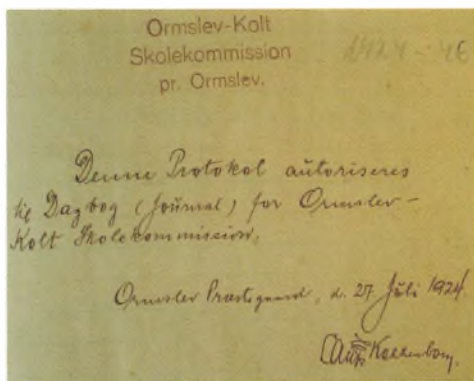 Ormslev-Kolt
Skolekommission
pr. Ormslev.
1924 - 46
Denne Protokol autoriseres
til Dagbog (Journal) for Ormslev-
Kolt Skolekommission,
Ormslev Præstegaard, d. 27 Juli 1924.